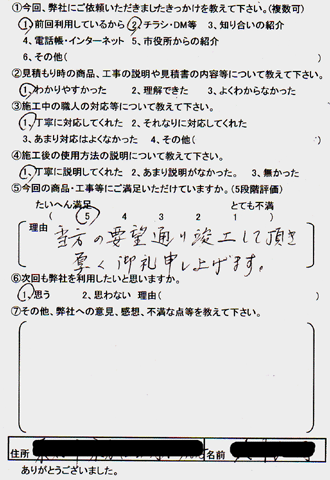 ①今回、弊社にご依頼いただきましたきっかけを教えて下さい。(複数可)
1、前回利用しているから 2、チラシ・DM等 3、知り合いの紹介
4、電話帳・インターネット 5、市役所からの紹介
6、その他(
②見積もり時の商品、工事の説明や見積書の内容等について教えて下さい。
1、わかりやすかった 2、理解できた 3、よくわからなかった
③施工中の職人の対応等について教えて下さい。
1、丁寧に対応してくれた 2、それなりに対応してくれた
3、あまり対応はよくなかった 4、その他(
④施工後の使用方法の説明について教えて下さい。
1、丁寧に説明してくれた 2、あまり説明がなかった。 3、無かった
⑤今回の商品・工事等にご満足いただけていますか。(5段階評価)
たいへん満足 とても不満
( 5 4 3 2 1 )
理由 当方の要望通り竣工して頂き
厚く御礼申し上げます。
⑥次回も弊社を利用したいと思いますか。
1、思う 2、思わない 理由(
⑦その他、弊社への意見、感想、不満な点等を教えて下さい。
住所 名前
ありがとうございました。